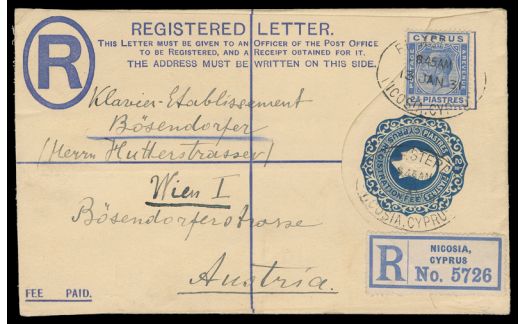 REGISTERED LETTER.
THIS LETTER MUST BE GIVEN TO AN OFFICER OF THE POST OFFICE
TO BE REGISTERED, AND A RECEIPT OBTAINED FOR IT.
THE ADDRESS MUST BE WRITTEN ON THIS SIDE.
R
CYPRUS
POSTAGE
REVENUE
PIASTRES
8.45AM
13 JAN 31
NICOSIA, CYPRUS
Klavier-Etablissement
Bösendorfer
(Herrn Hutterstrasser)
Wien I
Bösendorferstrasse
Austria.
PIASTRES
REGISTRATION FEE
NICOSIA, CYPRUS
R
NICOSIA,
CYPRUS
No. 5726
FEE PAID.